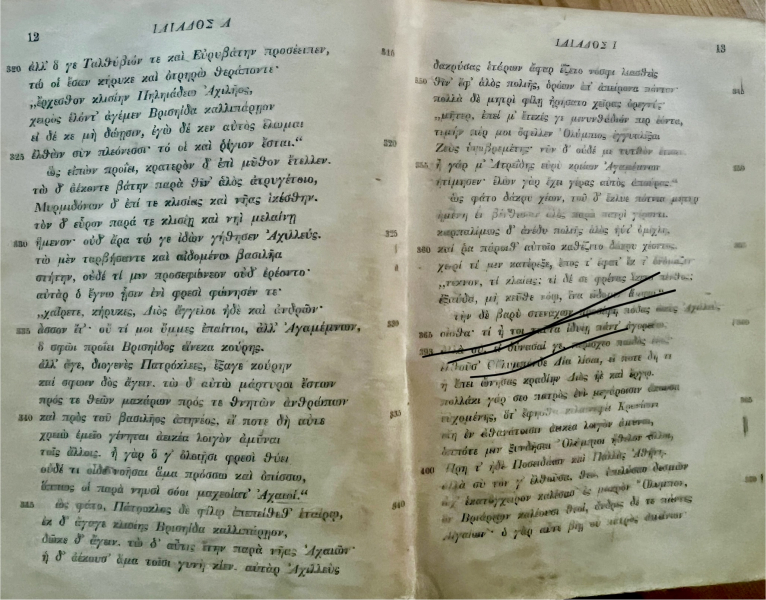 12
ΙΛΙΑΔΟΣ Α
320 ἀλλ' ὅ γε Ταλθύβιόν τε καὶ Εὐρυβάτην προσέειπεν,
τώ οἱ ἔσαν κήρυκε καὶ ὀτρηρὼ θεράποντε·
„ἔρχεσθον κλισίην Πηληιάδεω Ἀχιλῆος,
χειρὸς ἑλόντ' ἀγέμεν Βρισηίδα καλλιπάρηον
εἰ δέ κε μὴ δώῃσιν, ἐγὼ δέ κεν αὐτὸς ἕλωμαι
325 ἐλθὼν σὺν πλεόνεσσι· τό οἱ καὶ ῥίγιον ἔσται.“
ὣς εἰπὼν προΐει, κρατερὸν δ' ἐπὶ μῦθον ἔτελλεν.
τὼ δ' ἀέκοντε βάτην παρὰ θῖν' ἁλὸς ἀτρυγέτοιο,
Μυρμιδόνων δ' ἐπί τε κλισίας καὶ νῆας ἱκέσθην.
τὸν δ' εὗρον παρά τε κλισίῃ καὶ νηὶ μελαίνῃ
330 ἥμενον· οὐδ' ἄρα τώ γε ἰδὼν γήθησεν Ἀχιλλεύς.
τὼ μὲν ταρβήσαντε καὶ αἰδομένω βασιλῆα
στήτην, οὐδέ τί μιν προσεφώνεον οὐδ' ἐρέοντο·
αὐτὰρ ὁ ἔγνω ᾗσιν ἐνὶ φρεσὶ φώνησέν τε·
„χαίρετε, κήρυκες, Διὸς ἄγγελοι ἠδὲ καὶ ἀνδρῶν·
335 ἆσσον ἴτ'· οὔ τί μοι ὔμμες ἐπαίτιοι, ἀλλ' Ἀγαμέμνων,
ὃ σφῶι προΐει Βρισηίδος εἵνεκα κούρης.
ἀλλ' ἄγε, διογενὲς Πατρόκλεις, ἔξαγε κούρην
καί σφωιν δὸς ἄγειν. τὼ δ' αὐτὼ μάρτυροι ἔστων
πρός τε θεῶν μακάρων πρός τε θνητῶν ἀνθρώπων
340 καὶ πρὸς τοῦ βασιλῆος ἀπηνέος, εἴ ποτε δὴ αὖτε
χρειὼ ἐμεῖο γένηται ἀεικέα λοιγὸν ἀμῦναι
τοῖς ἄλλοις. ἦ γὰρ ὅ γ' ὀλοιῇσι φρεσὶ θύει
οὐδέ τι οἶδε νοῆσαι ἅμα πρόσσω καὶ ὀπίσσω,
ὅππως οἱ παρὰ νηυσὶ σόοι μαχεοίατ' Ἀχαιοί.“
345 ὣς φάτο, Πάτροκλος δὲ φίλῳ ἐπεπείθεθ' ἑταίρῳ,
ἐκ δ' ἄγαγε κλισίης Βρισηίδα καλλιπάρηον,
δῶκε δ' ἄγειν. τὼ δ' αὖτις ἴτην παρὰ νῆας Ἀχαιῶν·
ἡ δ' ἀέκουσ' ἅμα τοῖσι γυνὴ κίεν. αὐτὰρ Ἀχιλλεὺς
ΙΛΙΑΔΟΣ Ι
13
δακρύσας ἑτάρων ἄφαρ ἕζετο νόσφι λιασθεὶς
350 θῖν' ἔφ' ἁλὸς πολιῆς, ὁρόων ἐπ' ἀπείρονα πόντον·
πολλὰ δὲ μητρὶ φίλῃ ἠρήσατο χεῖρας ὀρεγνύς·
„μῆτερ, ἐπεί μ' ἔτεκές γε μινυνθάδιόν περ ἐόντα,
τιμήν πέρ μοι ὄφελλεν Ὀλύμπιος ἐγγυαλίξαι
Ζεὺς ὑψιβρεμέτης· νῦν δ' οὐδέ με τυτθὸν
355 ἦ γάρ μ' Ἀτρεΐδης εὐρὺ κρείων Ἀγαμέμνων
ἠτίμησεν· ἑλὼν γὰρ ἔχει γέρας αὐτὸς ἀπούρας“
ὣς φάτο δάκρυ χέων, τοῦ δ' ἔκλυε πότνια μήτηρ
ἡμένη ἐν βένθεσσιν ἁλὸς παρὰ πατρὶ γέροντι.
καρπαλίμως δ' ἀνέδυ πολιῆς ἁλὸς ἠύτ' ὀμίχλη,
360 καί ῥα πάροιθ' αὐτοῖο καθέζετο δάκρυ χέοντος,
χειρί τέ μιν κατέρεξε, ἔπος τ' ἔφατ' ἔκ τ' ὀνόμαζεν·
„τέκνον, τί κλαίεις; τί δέ σε φρένας πένθος;
ἐξαύδα, μὴ κεῦθε νόῳ, ἵνα
τὴν δὲ βαρὺ στενάχων πόδας ὠκὺς Ἀχιλλεύς
365 οἶσθα· τί ἦ τοι ταῦτα ἰδυίῃ πάντ' ἀγορεύω
393 ἀλλὰ σύ, εἰ δύνασαί γε, περίσχεο παιδὸς
ἐλθοῦσ' Οὔλυμπόνδε Δία λίσαι, εἴ ποτε δή τι
ἢ ἔπει ὤνησας κραδίην Διὸς ἠὲ καὶ ἔργῳ.
πολλάκι γάρ σεο πατρὸς ἐνὶ μεγάροισιν ἄκουσα
εὐχομένης, ὅτ' ἔφησθα κελαινεφέι Κρονίωνι
οἴη ἐν ἀθανάτοισιν ἀεικέα λοιγὸν ἀμῦναι,
ὁππότε μιν ξυνδῆσαι Ὀλύμπιοι ἤθελον ἄλλοι,
400 Ἥρη τ' ἠδὲ Ποσειδάων καὶ Παλλὰς Ἀθήνη.
ἀλλὰ σὺ τόν γ' ἐλθοῦσα, θεά, ὑπελύσαο δεσμῶν
ὦχ' ἑκατόγχειρον καλέσασ' ἐς μακρὸν Ὄλυμπον,
ὃν Βριάρεων καλέουσι θεοί, ἄνδρες δέ τε πάντες
Αἰγαίων'· ὁ γὰρ αὖτε βίῃ οὗ πατρὸς ἀμείνων